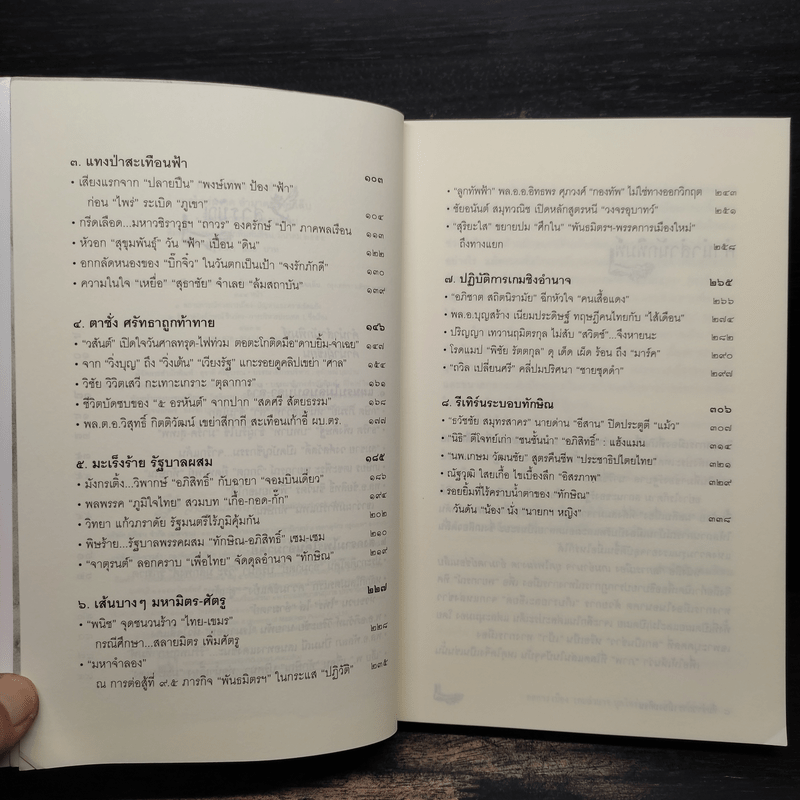 ๓. แทงป่าสะเทือนฟ้า ๑๐๓
• เสียงแรกจาก "ปลายปืน" "พงษ์เทพ" ป้อง "ฟ้า"
ก่อน "ไพร่" ระเบิด "ภูเขา" ๑๐๔
• กรีดเลือด...มหาวชิราวุธฯ "ถาวร" องครักษ์ "ป๋า" ภาคพลเรือน ๑๑๓
• หัวอก "สุขุมพันธุ์" วัน "ฟ้า" เปื้อน "ดิน" ๑๒๒
• อกกลัดหนองของ "บิ๊กจิ๋ว" ในวันตกเป็นเป้า "จงรักภักดี" ๑๓๐
• ความในใจ "เหยื่อ" "สุธาชัย" จำเลย "ล้มสถาบัน" ๑๓๙
๔. ตาชั่ง ศรัทธาถูกท้าทาย ๑๔๖
• "วสันต์" เปิดใจวันศาลทรุด-ไฟท่วม ตอตะโกติดมือ"ดาบยิ้ม-จ่าเฉย" ๑๔๗
• จาก "วิ่งบุญ" ถึง "วิ่งเต้น" "เวียงรัฐ" แกะรอยดูคลิปเขย่า "ศาล" ๑๕๔
• วิชัย วิวิตเสวี กะเทาะเกราะ "ตุลาการ" ๑๖๑
• ชีวิตบัดซบของ "๕ อรหันต์" จากปาก "สดศรี สัตยธรรม" ๑๖๘
• พล.ต.อ.วิสุทธิ์ กิตติวัฒน์ เขย่าสีกากี สะเทือนเก้าอี้ ผบ.ตร. ๑๗๗
๕. มะเร็งร้าย รัฐบาลผสม ๑๘๕
• มังกรเติ้ง...วิพากษ์ "อภิสิทธิ์" กับฉายา "จอมบินเดี่ยว" ๑๘๖
• พลพรรค "ภูมิใจไทย" สวมบท "เกื้อ-กอด-กั๊ก" ๑๙๔
• วิทยา แก้วภราดัย รัฐมนตรีไร้ภูมิคุ้มกัน ๒๐๒
• พิษร้าย...รัฐบาลพรรคผสม "ทักษิณ-อภิสิทธิ์" เซม-เซม ๒๑๐
• "จาตุรนต์" ลอกคราบ "เพื่อไทย" จัดดุลอำนาจ "ทักษิณ" ๒๑๙
๖. เส้นบางๆ มหามิตร-ศัตรู ๒๒๗
• "พนิช" จุดชนวนร้าว "ไทย-เขมร"
กรณีศึกษา...สลายมิตร เพิ่มศัตรู ๒๒๘
• "มหาจำลอง"
ณ การต่อสู้ที่ ๙.๕ ภารกิจ "พันธมิตรฯ" ในกระแส "ปฏิวัติ" ๒๓๕
• "ลูกทัพฟ้า" พล.อ.อ.อิทธพร ศุภวงศ์ "กองทัพ" ไม่ใช่ทางออกวิกฤต ๒๔๓
• ชัยอนันต์ สมุทวณิช เปิดหลักสูตรหนี "วงจรอุบาทว์" ๒๕๑
• "สุริยะใส" ขยายปม "ศึกใน" "พันธมิตรฯ-พรรคการเมืองใหม่"
ถึงทางแยก ๒๕๘
๗. ปฏิบัติการเกมชิงอำนาจ ๒๖๕
• "อภิชาต สถิตนิรามัย" ฉีกหัวใจ "คนเสื้อแดง" ๒๖๖
• พล.อ.บุญสร้าง เนียมประดิษฐ์ ทฤษฎีคนไทยกับ "ไส้เดือน" ๒๗๔
• ปริญญา เทวานฤมิตรกุล ไม่สับ "สวิตช์"...จึงหายนะ ๒๘๒
• โรดแมป "พิชัย รัตตกุล" ดุ เด็ด เผ็ด ร้อน ถึง "มาร์ค" ๒๙๐
• "ถวิล เปลี่ยนศรี" คลี่ปมปริศนา "ชายชุดดำ" ๒๙๗
๘. รีเทิร์นระบอบทักษิณ ๓๐๖
• "ธวัชชัย สมุทรสาคร" นายด่าน "อีสาน" ปิดประตูตี "แม้ว" ๓๐๗
• "นิธิ" ตีโจทย์เก่า "ชนชั้นนำ" "อภิสิทธิ์" : แฮ้งแมน ๓๑๔
• "นพ.เกษม วัฒนชัย" สูตรคืนชีพ "ประชาธิปไตยไทย" ๓๒๑
• ณัฐวุฒิ ใสยเกื้อ ไขเบื้องลึก "อิสรภาพ" ๓๒๙
• รอยยิ้มที่ไร้คราบน้ำตาของ "ทักษิณ"
วันดัน "น้อง" นั่ง "นายกฯ หญิง" ๓๓๘